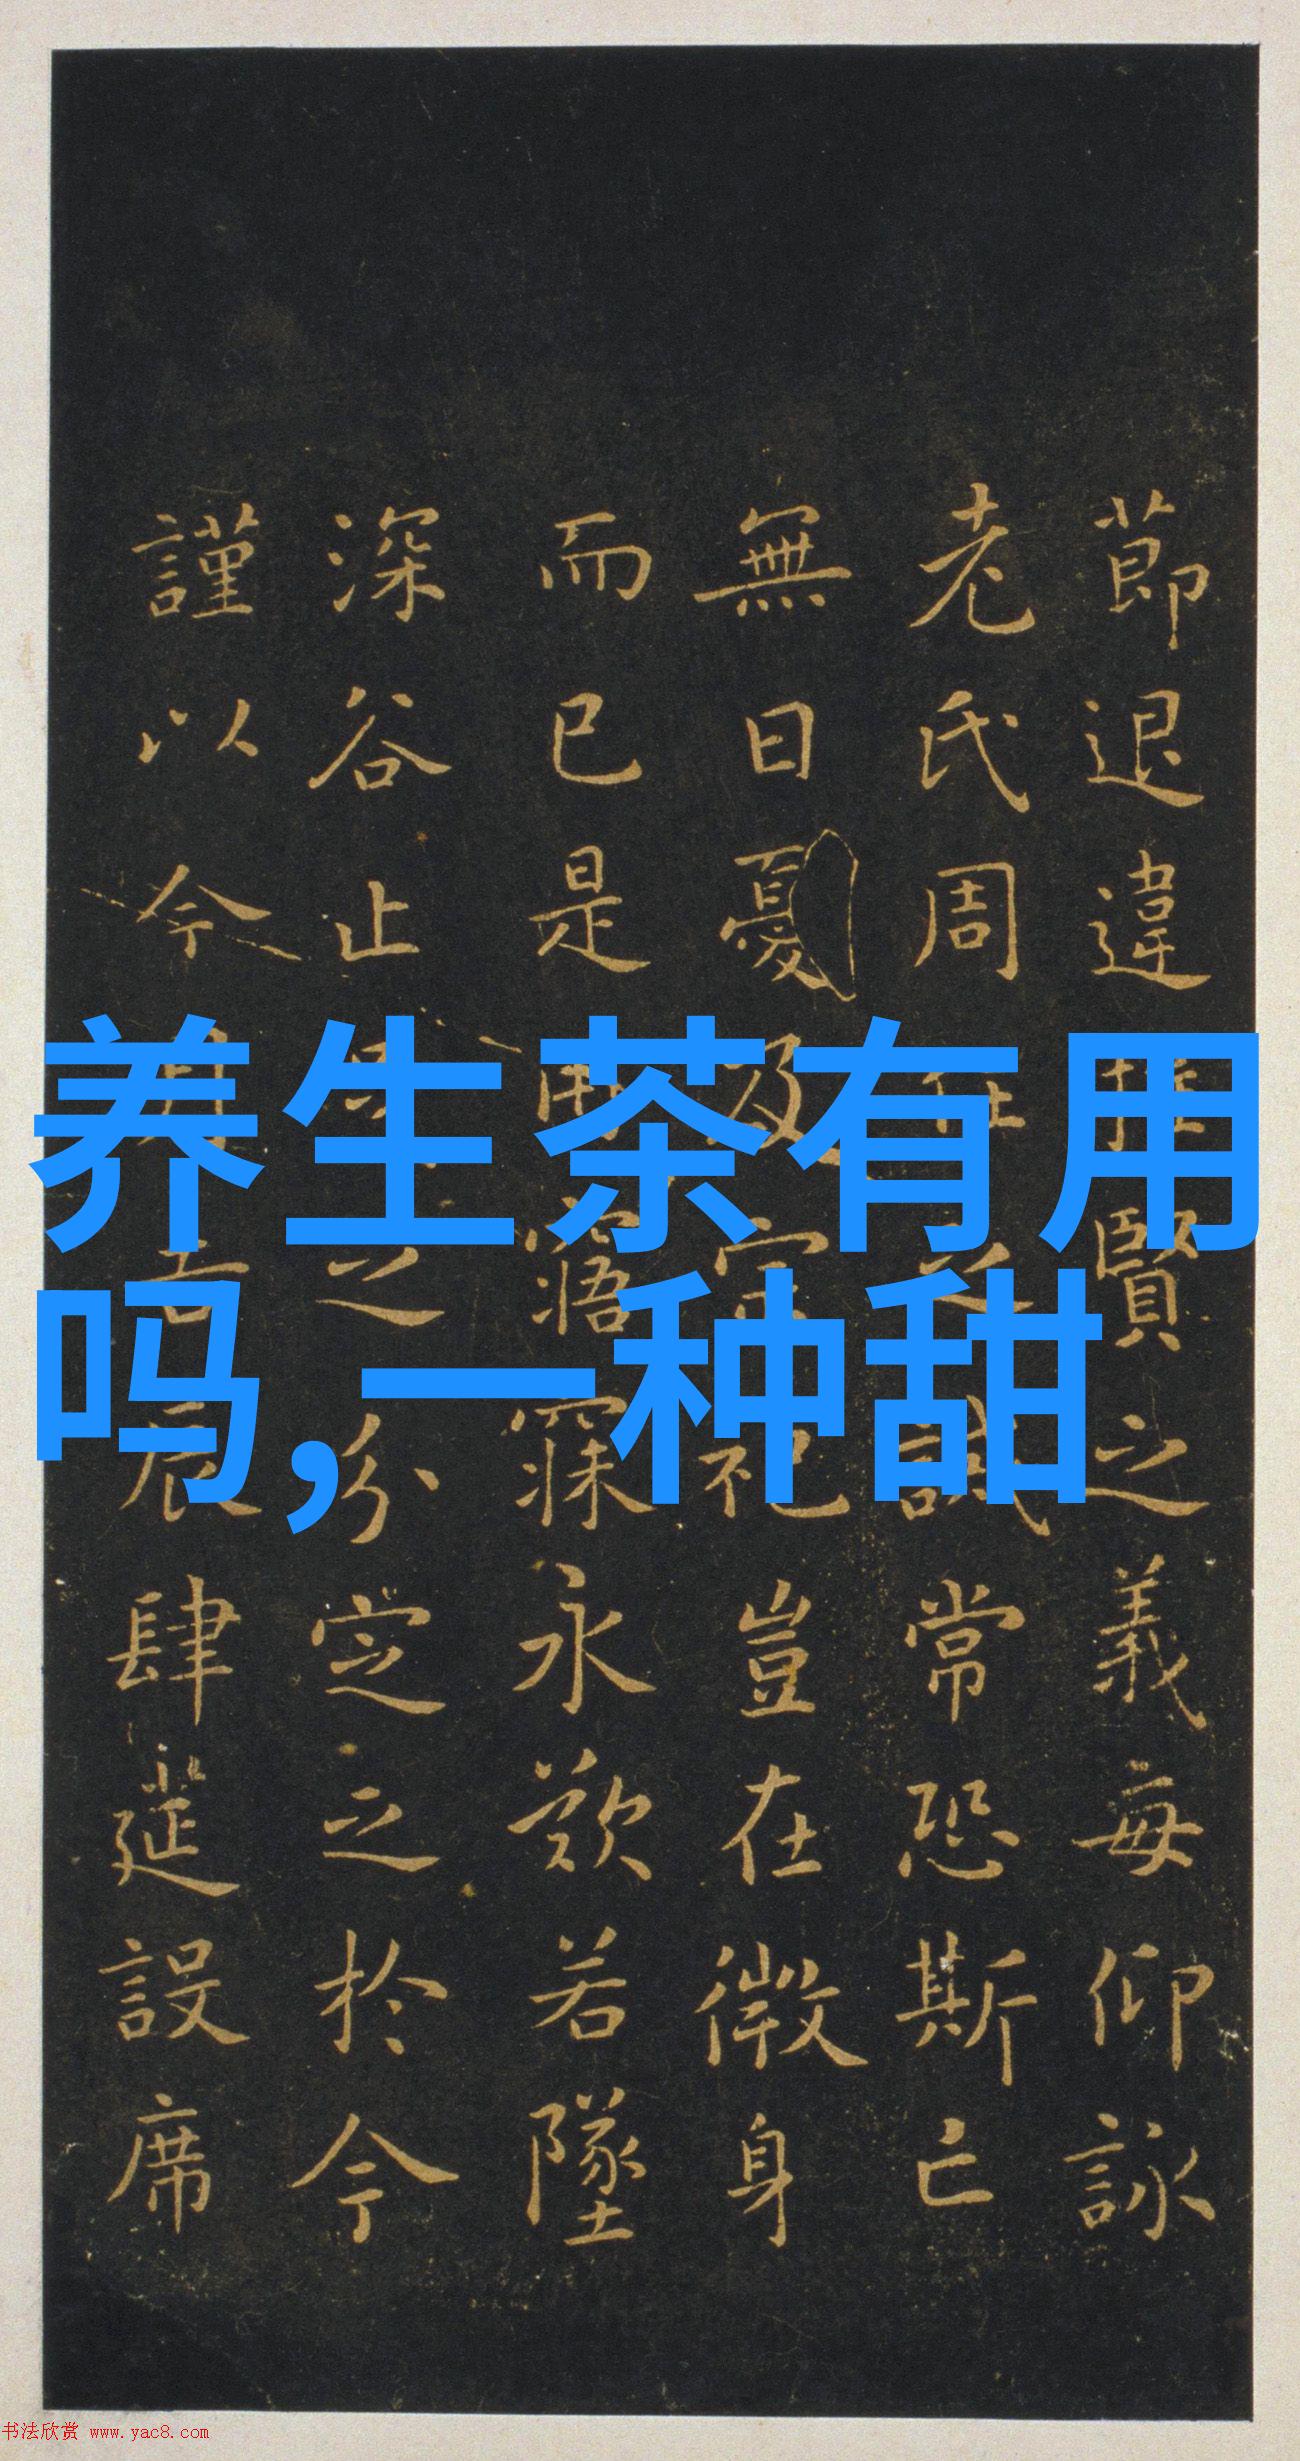 節退違賢之義每仰詠
老氏周誡常恐斯亡
無日憂及祀豈在微身
而已是用寤寐永歎若墜
深谷止之分定之於今
謹以今月吉辰肆筵設席
养生茶有用
吗,一种甜
书法欣赏 www.yac8.com